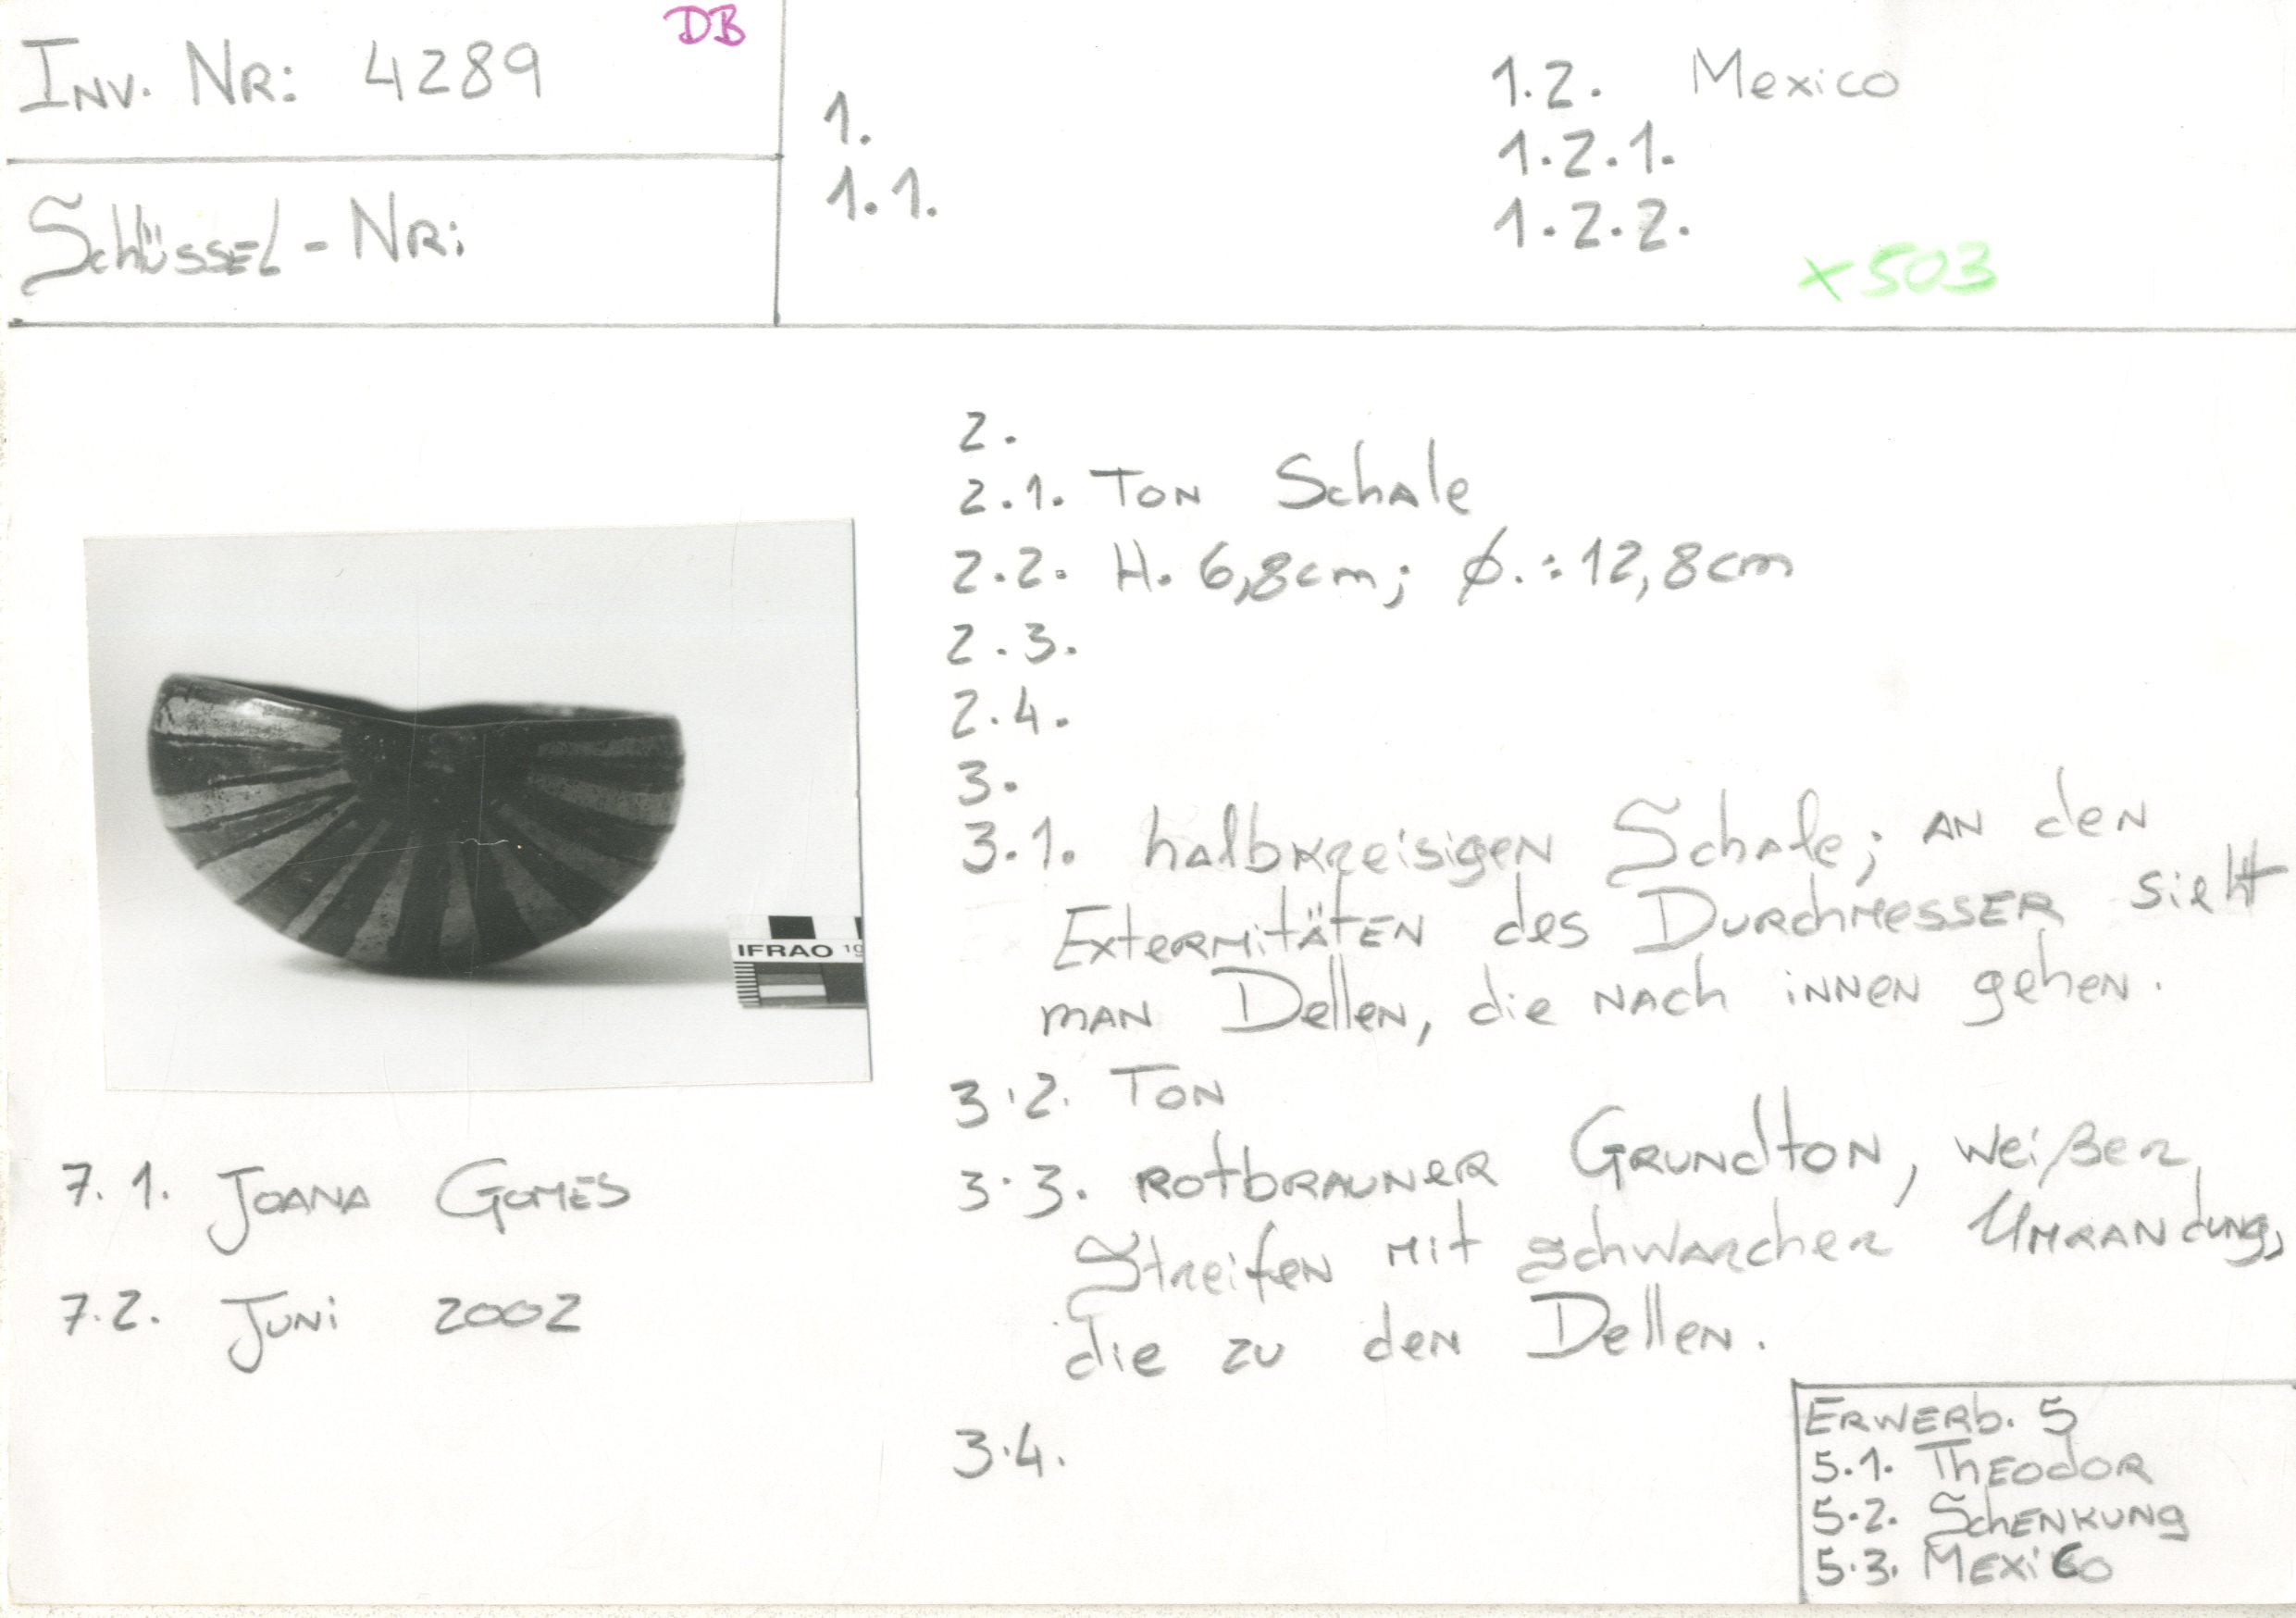 DB
Inv. Nr: 4289
Schlüssel-Nr:
1.
1.1.
1.2. Mexico
1.2.1.
1.2.2.
x503
2.
2.1. Ton Schale
2.2. H. 6,8cm; ∅.:12,8cm
2.3.
2.4.
3.
3.1. halbkreisigen Schale; an den
Extermitäten des Durchmesser sieht
man Dellen, die nach innen gehen.
3.2. Ton
3.3. rotbrauner Grundton, weißer,
Streifen mit schwarcher Umrandung,
die zu den Dellen.
3.4.
IFRAO 19
7.1. Joana Gomes
7.2. Juni 2002
Erwerb. 5
5.1. Theodor
5.2. Schenkung
5.3. Mexico